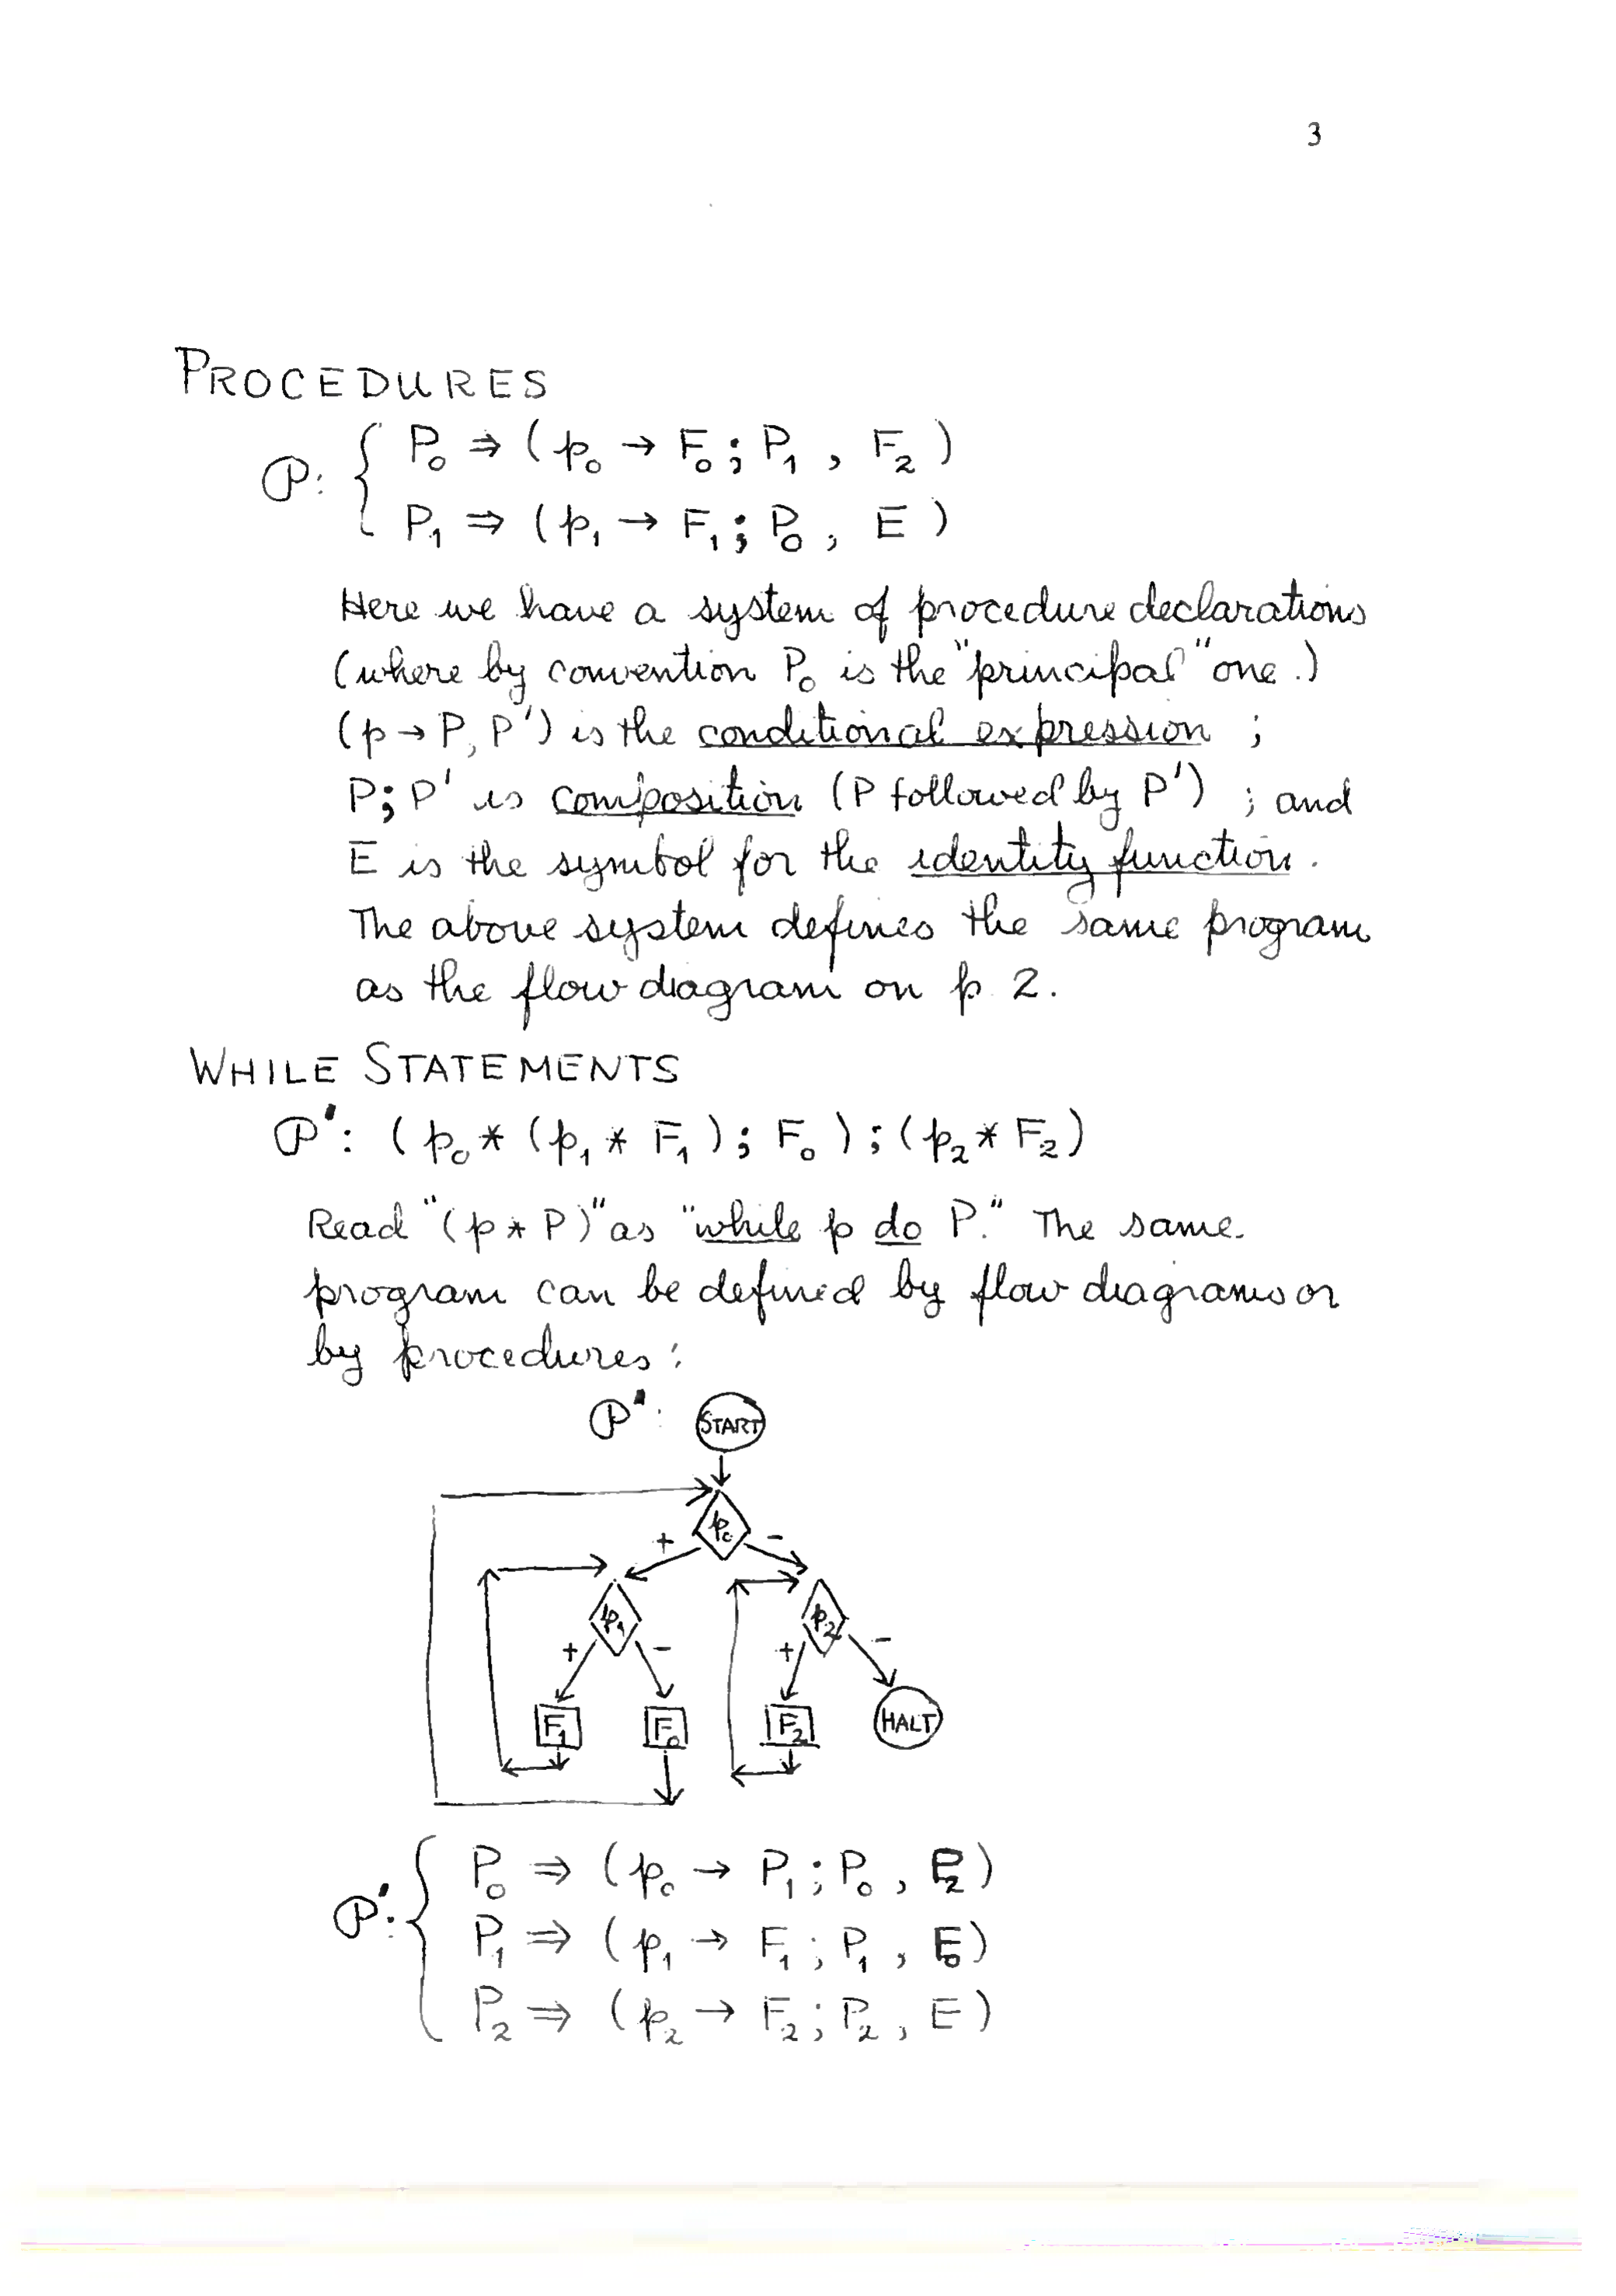 3
PROCEDURES
P: { P₀ ⇒ (p₀ → F₀; P₁, F₂)
P₁ ⇒ (p₁ → F₁; P₀, E)
Here we have a system of procedure declarations
(where by convention P₀ is the "principal" one.)
(p → P, P′) is the conditional expression;
P; P′ is composition (P followed by P′); and
E is the symbol for the identity function.
The above system defines the same program
as the flow diagram on p 2.
WHILE STATEMENTS
P′: (p₀ * (p₁ * F₁); F₀); (p₂ * F₂)
Read "(p * P)" as "while p do P." The same
program can be defined by flow diagrams or
by procedures:
P′: START
p₀
+ −
p₁ p₂
+ − + −
F₁ F₀ F₂ HALT
P′: { P₀ ⇒ (p₀ → P₁; P₀, P₂)
P₁ ⇒ (p₁ → F₁; P₁, F₀)
P₂ ⇒ (p₂ → F₂; P₂, E)